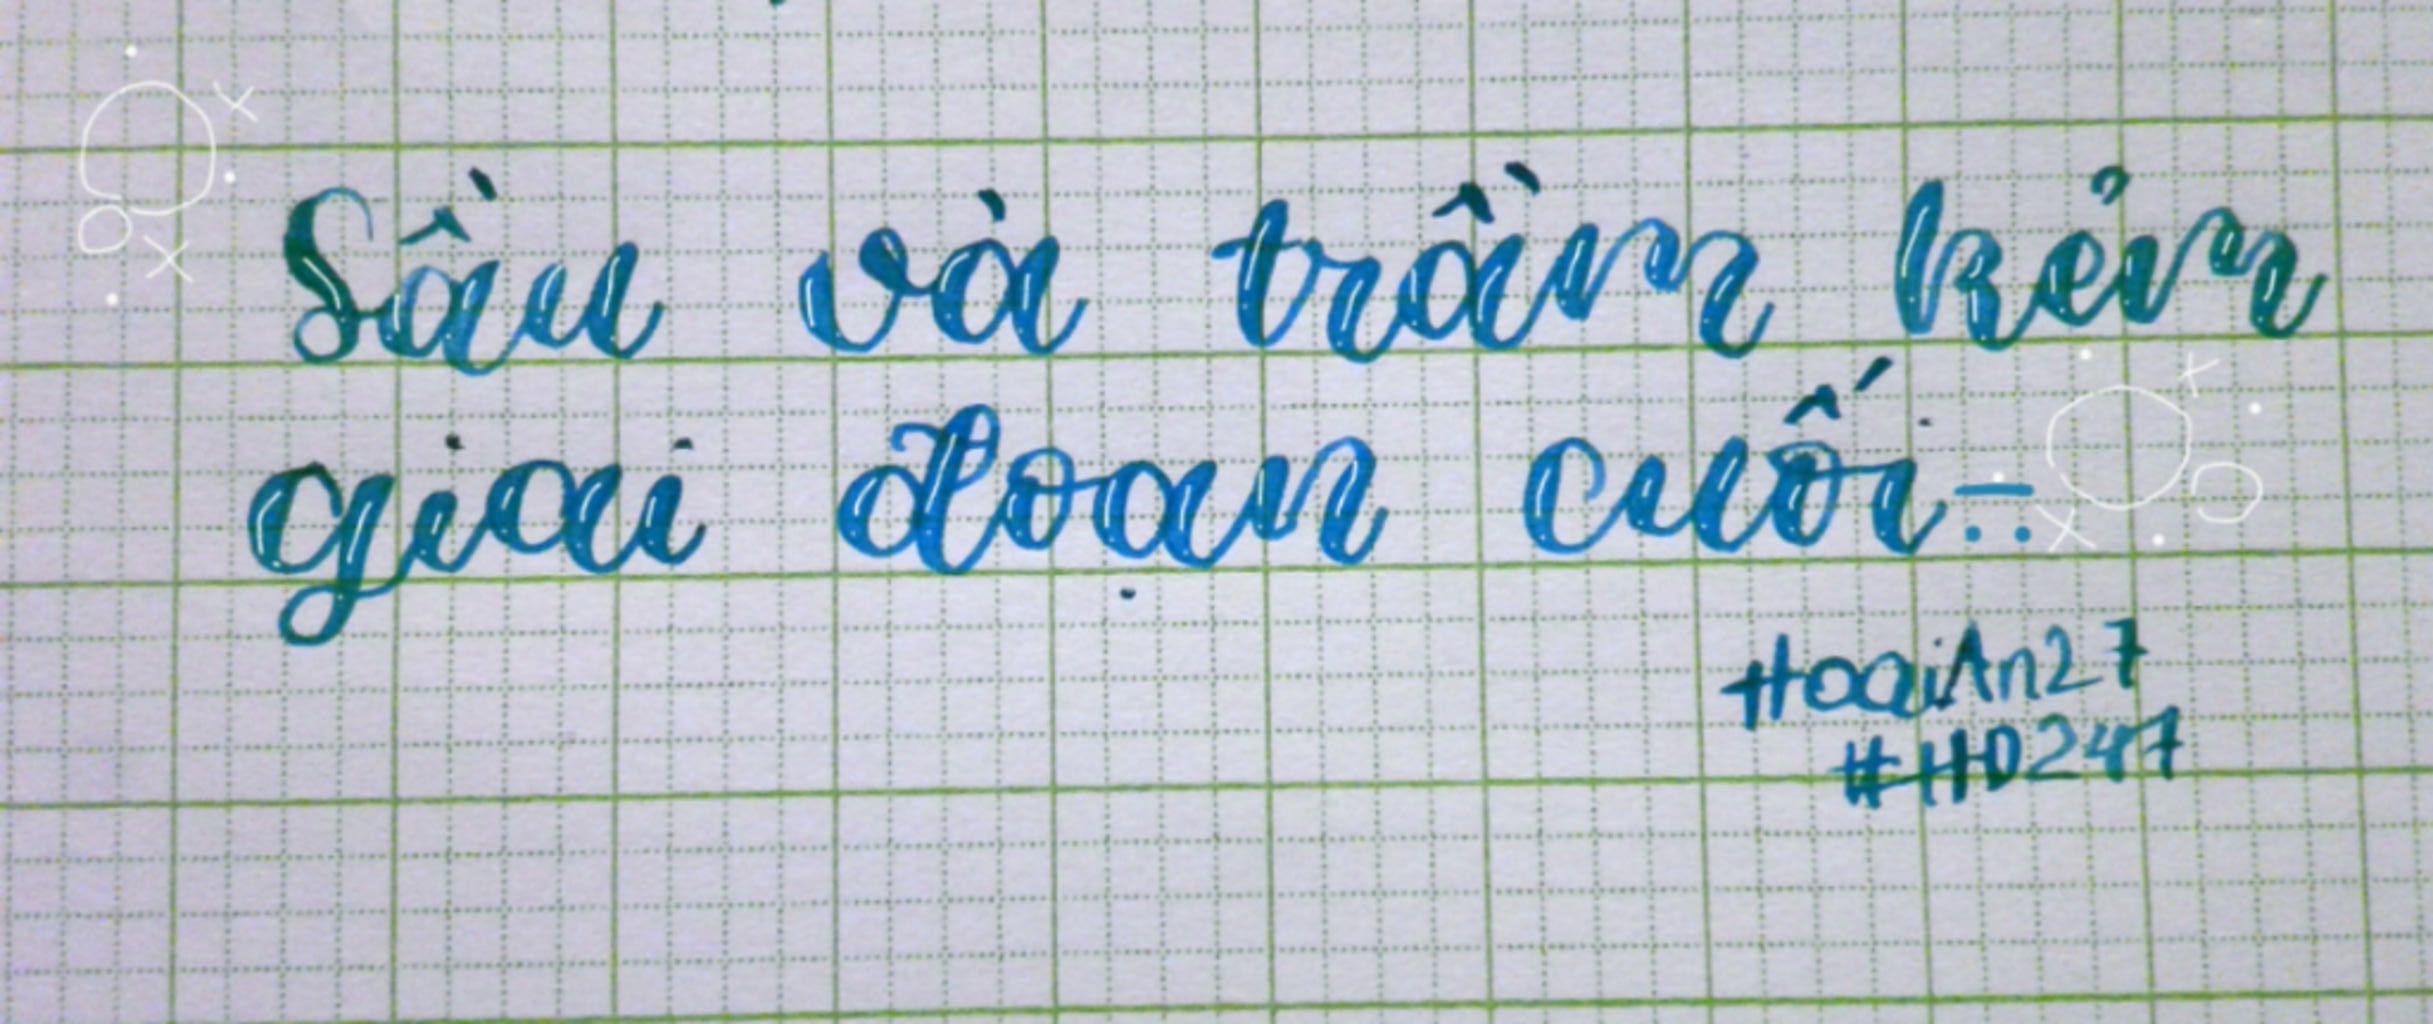 Sầu và trầm kẻm
giai đoạn cuối
HoaiAn27
#HD247